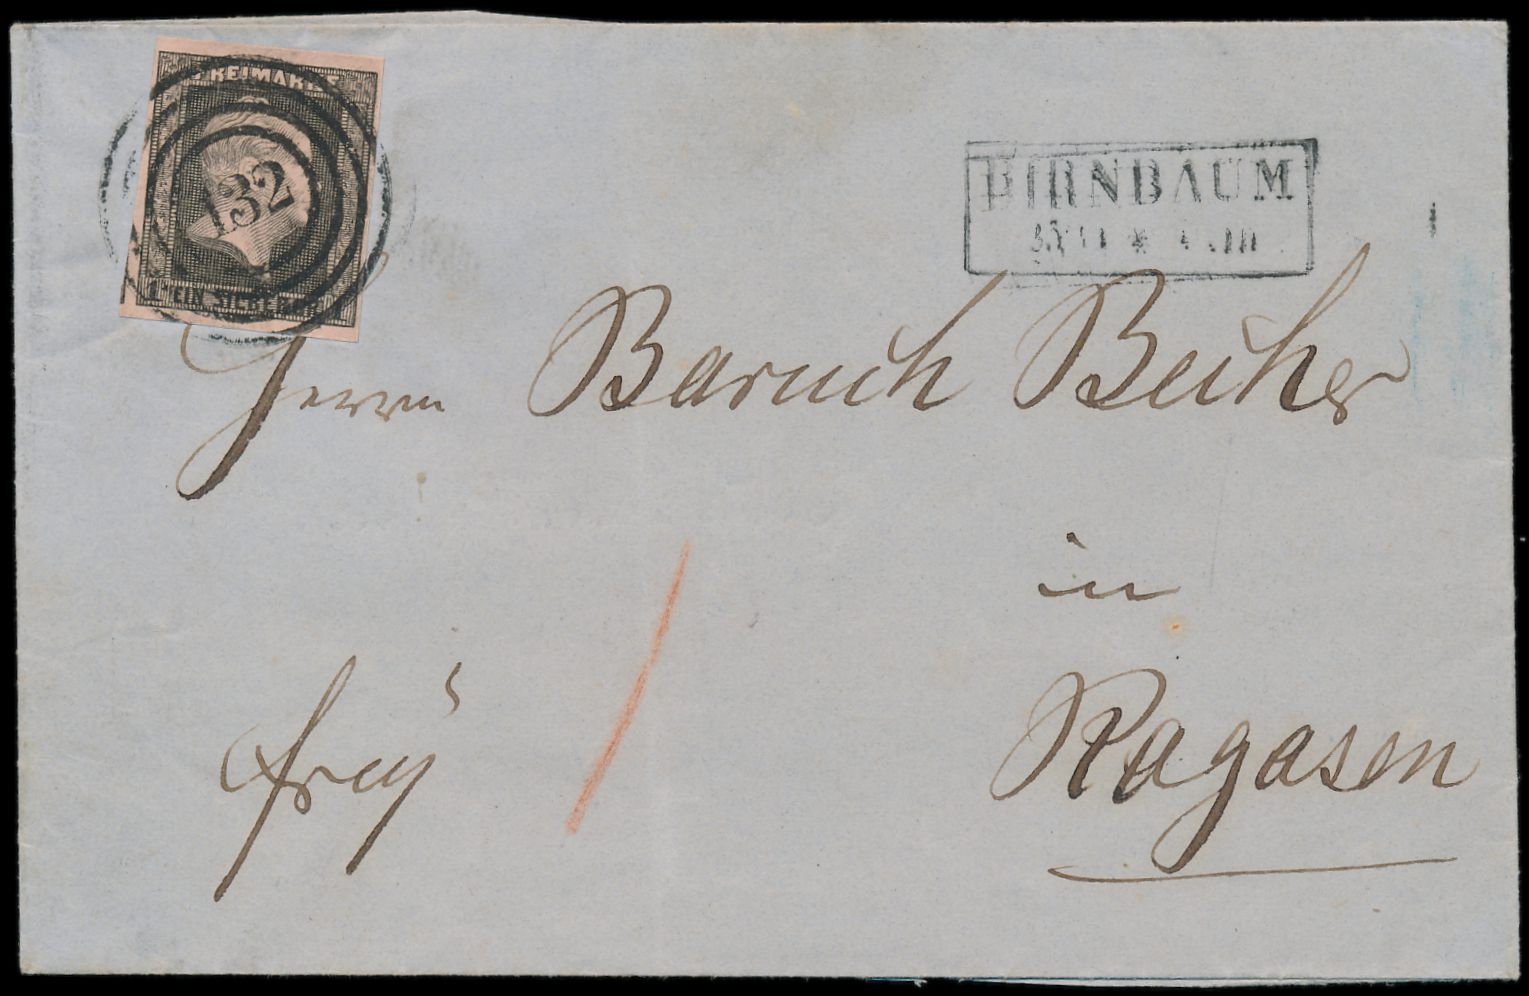 FREIMARKE
132
1 EIN SILBERGR.
BIRNBAUM
Herrn Baruch Beiher
in
Ragasen
frey